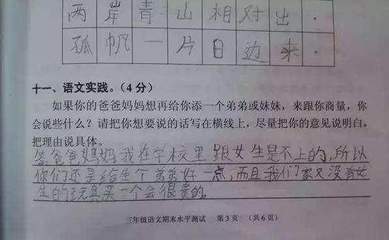 两岸青山相对出.
孤帆一片日边来.
十一、语文实践。(4分)
如果你的爸爸妈妈想再给你添一个弟弟或妹妹,来跟你商量,你
会说些什么?请把你想要说的话写在横线上,尽量把你的意见说明白,
把理由说具体。
爸爸妈妈我在学校里跟女生是不上的,所以
你们还是给生个弟弟好一点,而且我们家又没有女
生的玩具买一个会很贵的
三年级语文期末水平测试 第3页 (共6页)